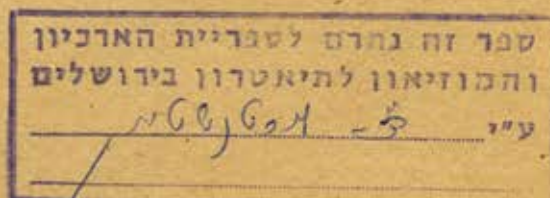 ספר זה נתרם לספריית הארכיון
והמוזיאון לתיאטרון בירושלים
ע"י